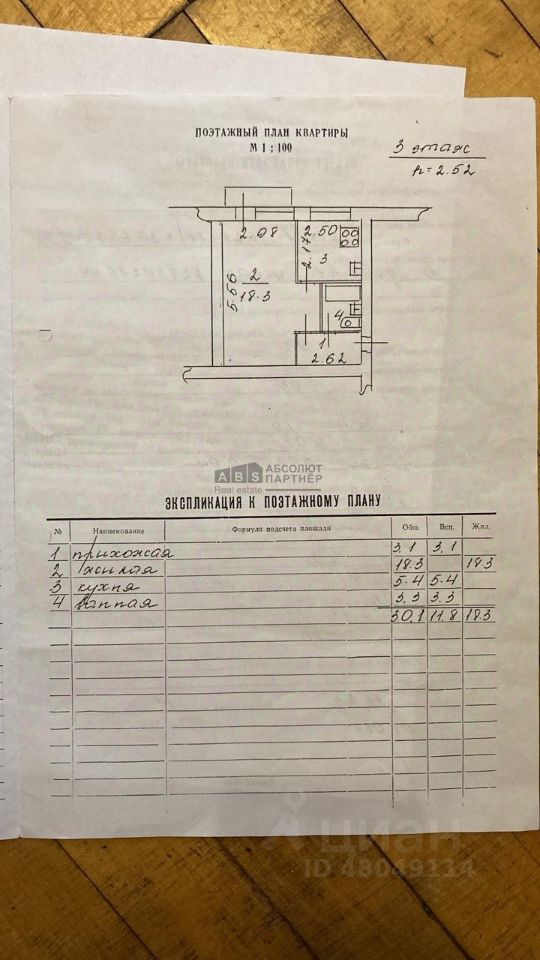 ПОЭТАЖНЫЙ ПЛАН КВАРТИРЫ
М 1 : 100
3 этаж
h = 2.52
2.98
2.50
2.17
3
5.60
2
18.3
4
1
2.62
ABS
Real estate
АБСОЛЮТ
ПАРТНЁР
ЭКСПЛИКАЦИЯ К ПОЭТАЖНОМУ ПЛАНУ
№ Наименование Формула подсчета площади Общ. Всп. Жил.
1 прихожая 3.1 3.1
2 жилая 18.3 18.3
3 кухня 5.4 5.4
4 ванная 3.3 3.3
30.1 11.8 18.3
циан
ID 48049114